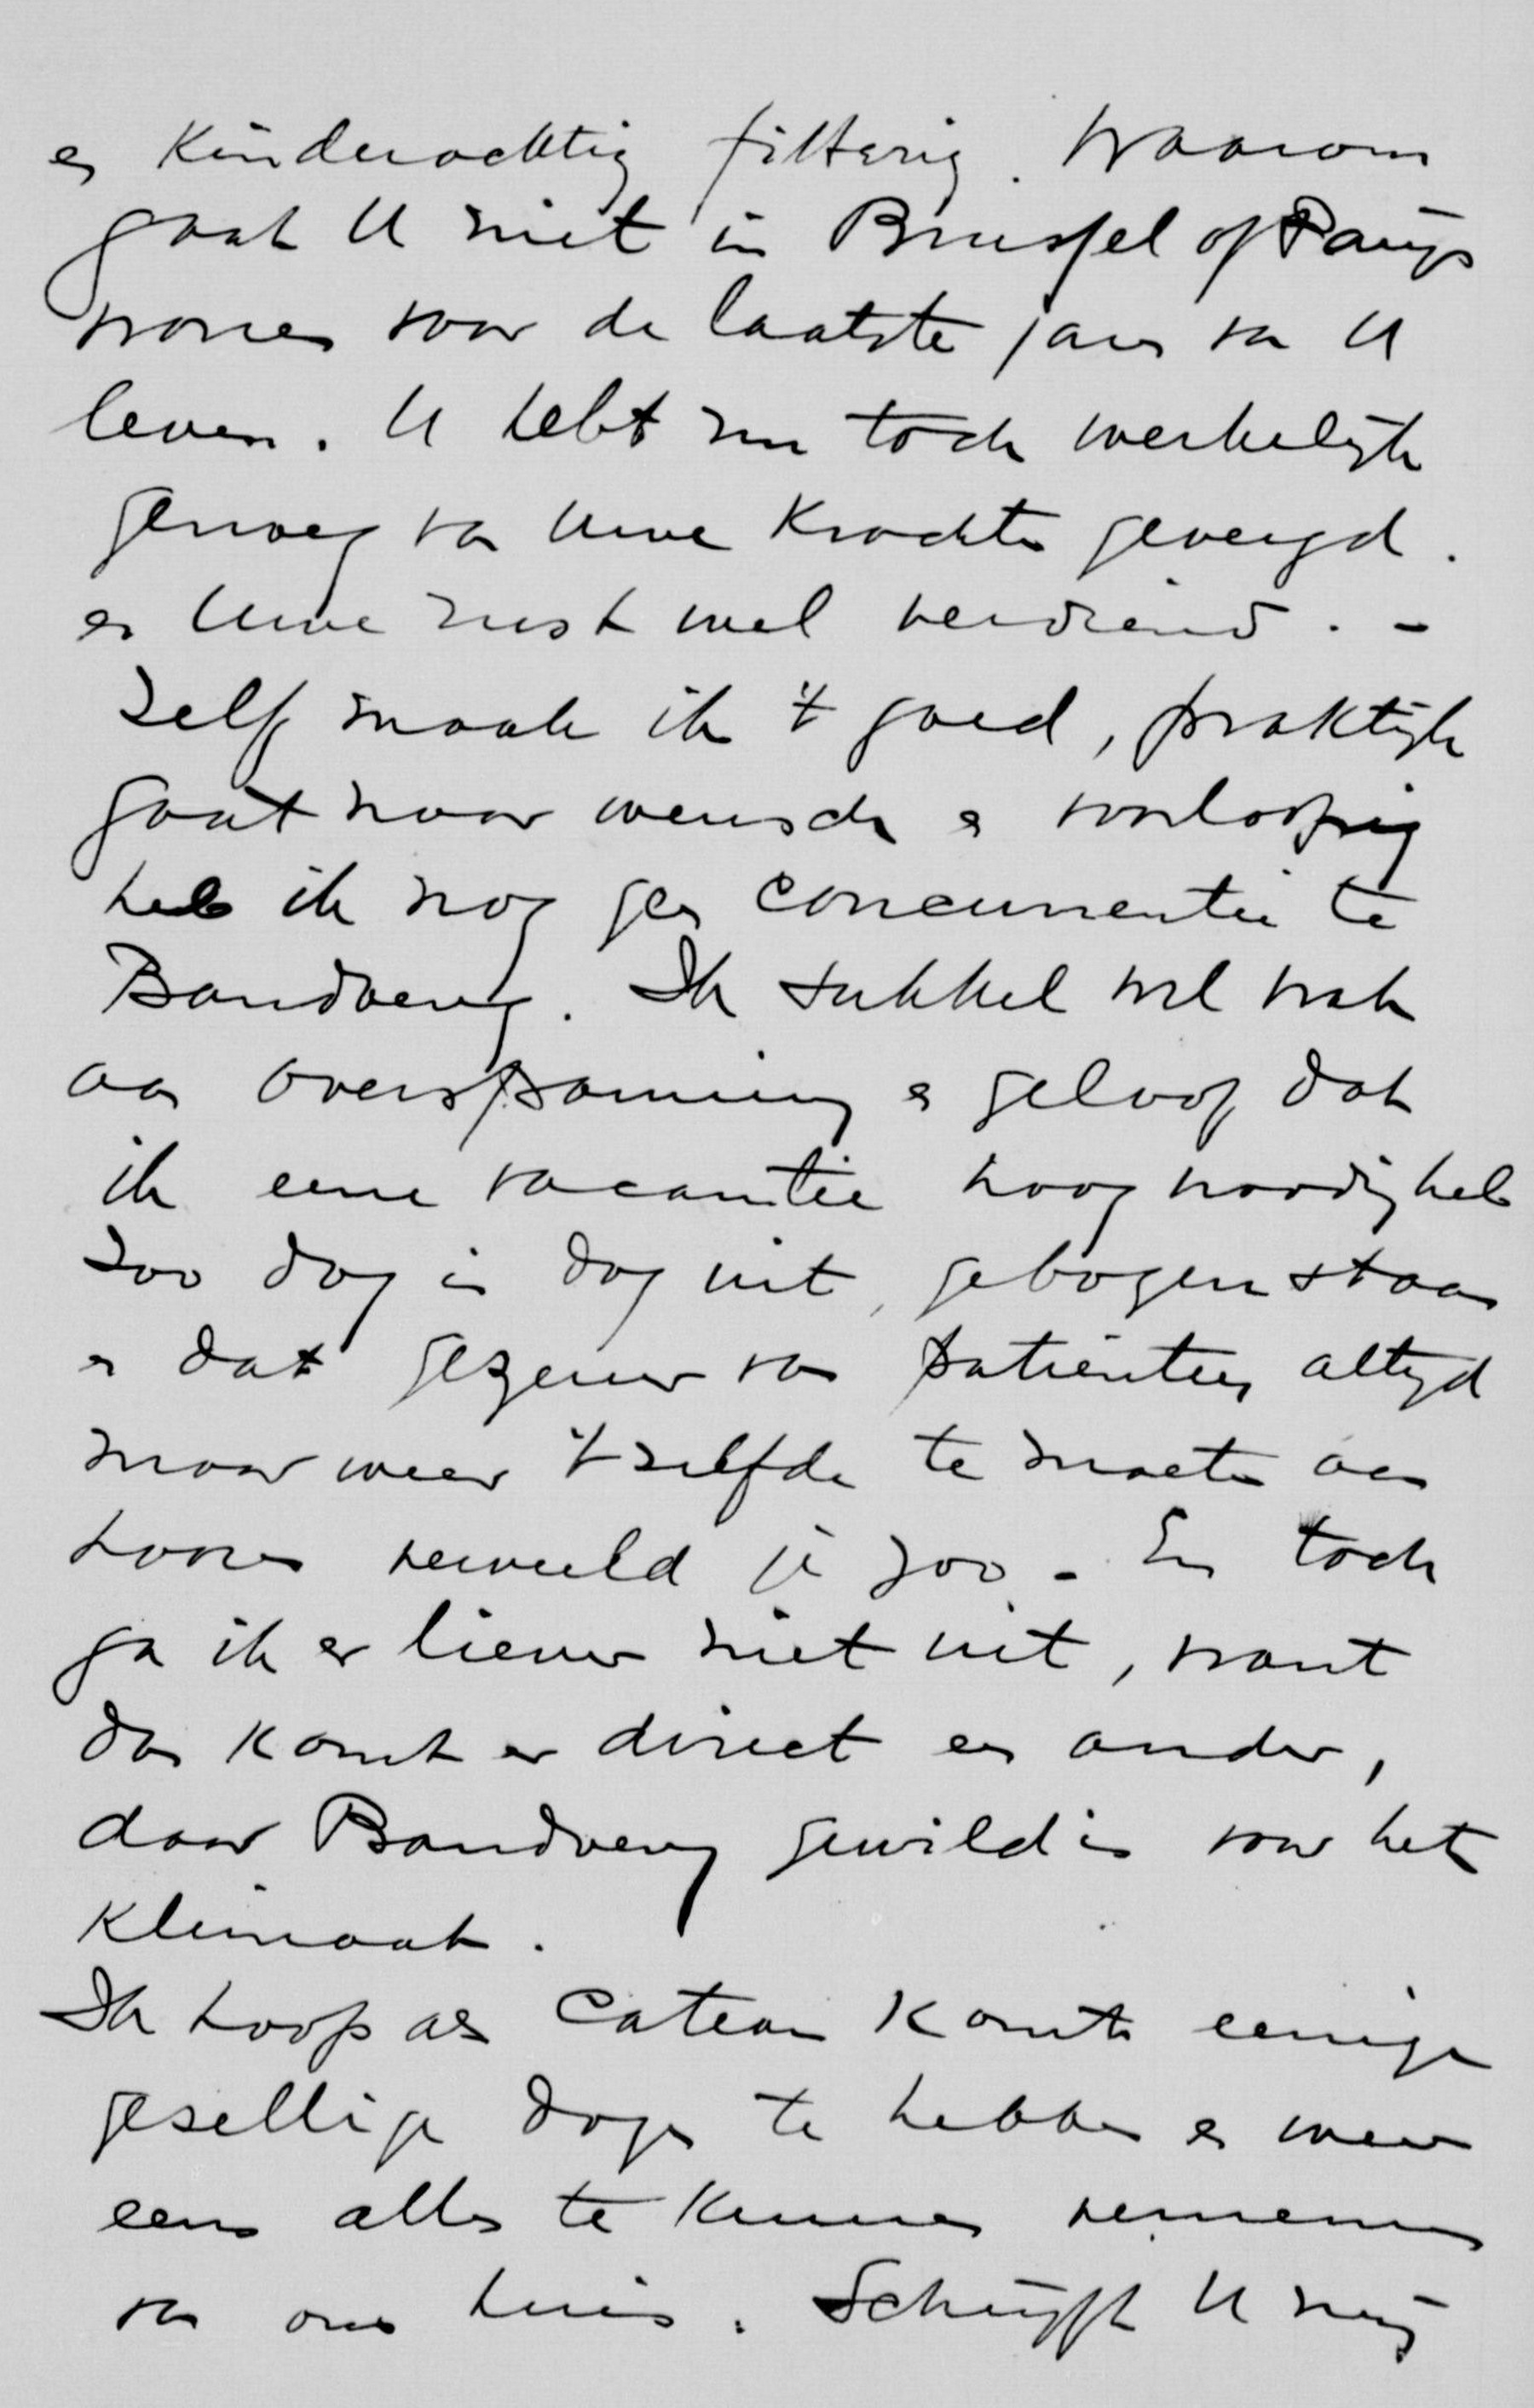 en kinderachtig fitterig. Waarom
gaat U niet in Brussel of Parijs
wonen voor de laatste jaren van U
leven. U hebt nu toch werkelijk
genoeg van Uwe krachten gevergd.
en Uwe rust wel verdiend. -
Zelf maak ik 't goed, praktijk
gaat naar wensch en voorloopig
heb ik nog geen concurrentie te
Bandoeng. Ik sukkel wel wat
aan overspanning en geloof dat
ik eene vacantie hoog noodig heb
Zoo dag in dag uit, gebogen staan
en dat gezeur van patiënten altijd
maar weer 't zelfde te moeten aan
hooren verveeld je zoo - En toch
ga ik er liever niet uit, want
dan komt er direct een ander,
daar Bandoeng gewild is voor het
klimaat.
Ik hoop als Cateau komt eenige
gesellige dagen te hebben en weer
eens alles te kunnen vernemen
van ons huis. Schrijft U mij